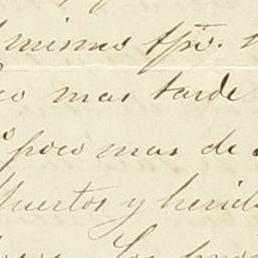 mismo tpo.
mas tarde
poco mas de
muertos y herid